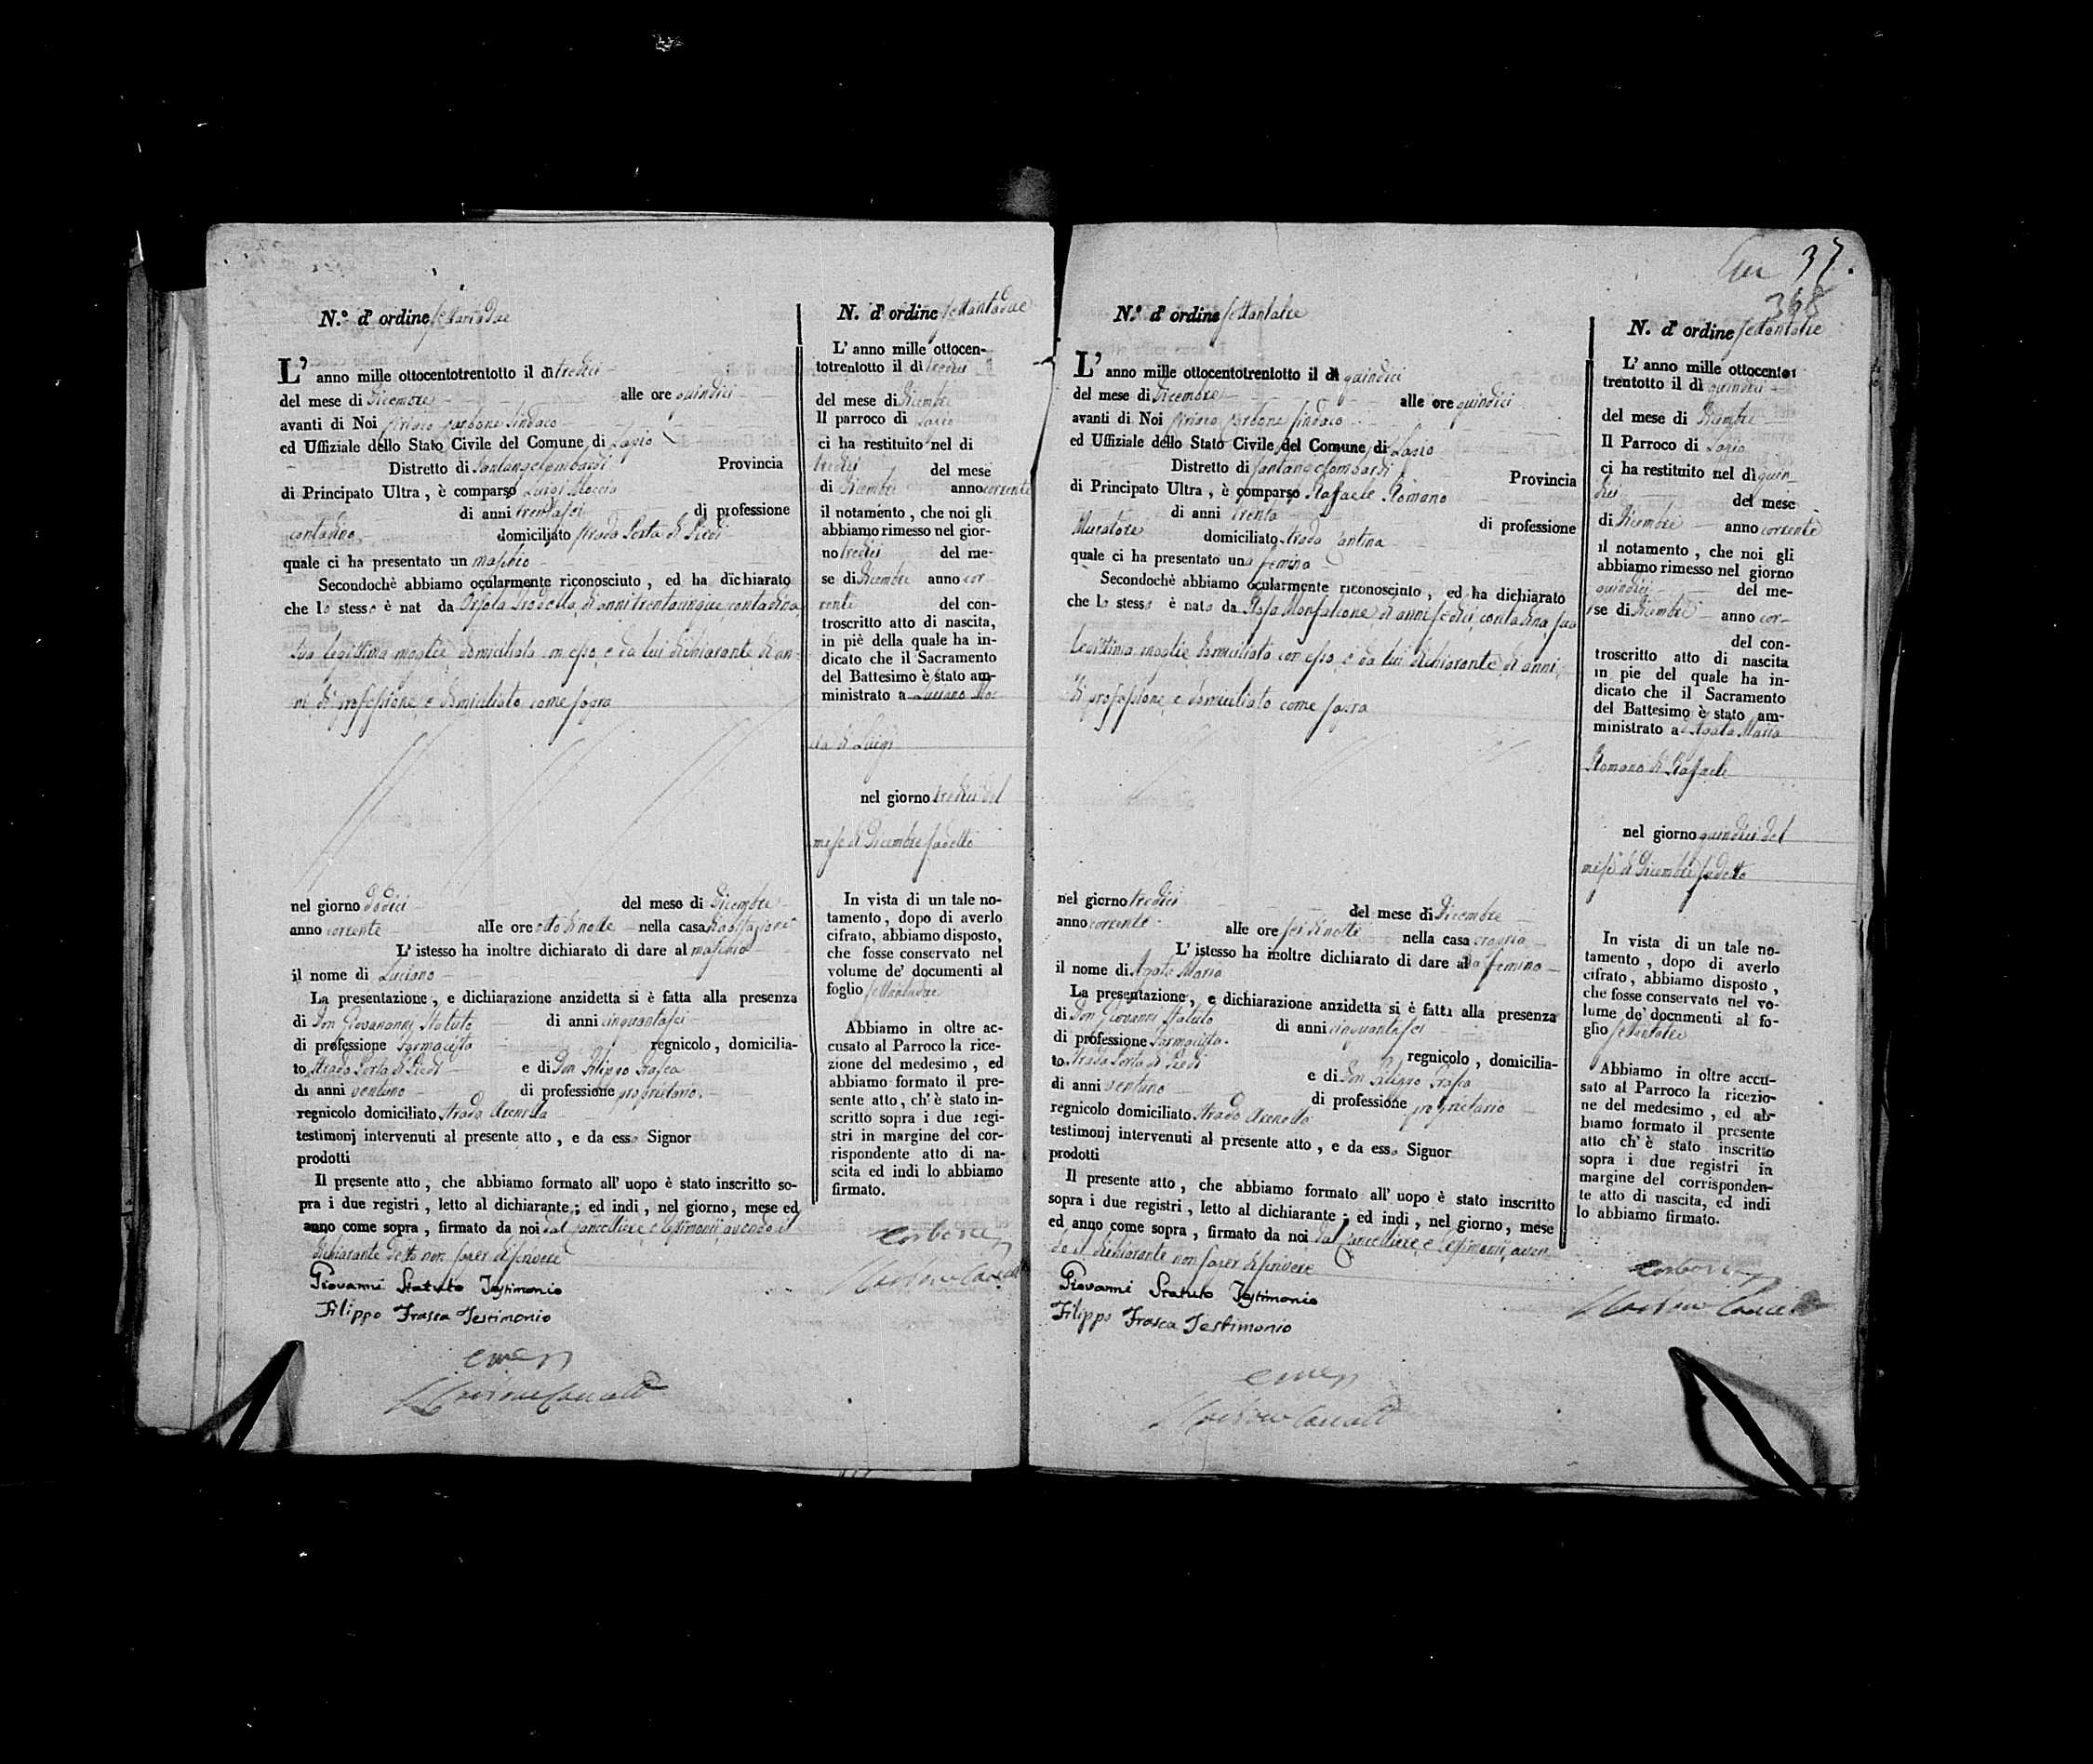 N.º d' ordine settantadue
L' anno mille ottocentotrentotto il dì tredici
del mese di Dicembre alle ore quindici
avanti di Noi Ciriaco Carbone Sindaco
ed Uffiziale dello Stato Civile del Comune di
Distretto di Santangelombardi Provincia
di Principato Ultra, è comparso Luigi
di anni trentasei di professione
contadino domiciliato strada Porta di Piedi
quale ci ha presentato un maschio
Secondochè abbiamo ocularmente riconosciuto, ed ha dichiarato
che lo stesso è nat da Orsola di anni trentacinque contadina
sua legittima moglie domiciliata con esso, e da lui dichiarante di an-
ni, di professione, e domiciliato come sopra
nel giorno dodici del mese di Dicembre
anno corrente alle ore otto di notte nella casa di abitazione
L' istesso ha inoltre dichiarato di dare al maschio
il nome di Luciano
La presentazione, e dichiarazione anzidetta si è fatta alla presenza
di Don Giovananni Statuto di anni cinquantasei
di professione Farmacista regnicolo, domicilia-
to Strada Porta di Piedi e di Don Filippo Frasca
di anni ventuno di professione proprietario
regnicolo domiciliato strada Arenella
testimonj intervenuti al presente atto, e da esso Signor
prodotti
Il presente atto, che abbiamo formato all' uopo è stato inscritto so-
pra i due registri, letto al dichiarante; ed indi, nel giorno, mese ed
anno come sopra, firmato da noi dal Cancelliere, e testimonii avendo il
dichiarante detto non saper di scrivere
Giovanni Statuto Testimonio
Filippo Frasca Testimonio
N. d' ordine settantadue
L' anno mille ottocen-
totrentotto il dì tredici
del mese di Dicembre
Il parroco di
ci ha restituito nel di
tredici del mese
di Dicembre anno corrente
il notamento, che noi gli
abbiamo rimesso nel gior-
no tredici del me-
se di Dicembre anno cor-
rente del con-
troscritto atto di nascita,
in piè della quale ha in-
dicato che il Sacramento
del Battesimo è stato am-
ministrato a Luciano
di Luigi
nel giorno tredici del
mese di Dicembre sudetto
In vista di un tale no-
tamento, dopo di averlo
cifrato, abbiamo disposto,
che fosse conservato nel
volume de' documenti al
foglio settantadue
Abbiamo in oltre ac-
cusato al Parroco la rice-
zione del medesimo, ed
abbiamo formato il pre-
sente atto, ch' è stato in-
scritto sopra i due regi-
stri in margine del cor-
rispondente atto di na-
scita ed indi lo abbiamo
firmato.
Carbone
37.
368
N.º d' ordine settantatre
L' anno mille ottocentotrentotto il dì quindici
del mese di Dicembre alle ore quindici
avanti di Noi Ciriaco Carbone Sindaco
ed Uffiziale dello Stato Civile del Comune di
Distretto di Santangelombardi Provincia
di Principato Ultra, è comparso Raffaele Romano
di anni trenta di professione
Muratore domiciliato strada Cantina
quale ci ha presentato una femina
Secondochè abbiamo ocularmente riconosciuto, ed ha dichiarato
che lo stesso è nato da Rosa Monfalcone di anni sedici contadina sua
legittima moglie domiciliata con esso, e da lui dichiarante di anni,
di professione, e domiciliato come sopra
nel giorno tredici del mese di Dicembre
anno corrente alle ore sei di notte nella casa propria
L' istesso ha inoltre dichiarato di dare alla femina
il nome di Agata Maria
La presentazione, e dichiarazione anzidetta si è fatta alla presenza
di Don Giovanni Statuto di anni cinquantasei
di professione Farmacista. regnicolo, domicilia-
to Strada Porta di Piedi e di Don Filippo Frasca
di anni ventuno di professione proprietario
regnicolo domiciliato strada Arenella
testimonj intervenuti al presente atto, e da esso Signor
prodotti
Il presente atto, che abbiamo formato all' uopo è stato inscritto
sopra i due registri, letto al dichiarante; ed indi, nel giorno, mese
ed anno come sopra, firmato da noi dal Cancelliere, e testimonii, aven-
do il dichiarante non saper di scrivere
Giovanni Statuto Testimonio
Filippo Frasca Testimonio
N. d' ordine settantatre
L' anno mille ottocento
trentotto il dì quindici
del mese di Dicembre
Il Parroco di
ci ha restituito nel dì quin-
dici del mese
di Dicembre anno corrente
il notamento, che noi gli
abbiamo rimesso nel giorno
quindici del me-
se di Dicembre anno cor-
del con-
troscritto atto di nascita
in pie del quale ha in-
dicato che il Sacramento
del Battesimo è stato am-
ministrato a Agata Maria
Romano di Raffaele
nel giorno quindici del
mese di Dicembre sudetto
In vista di un tale no-
tamento, dopo di averlo
cifrato, abbiamo disposto,
che fosse conservato nel vo-
lume de' documenti al fo-
glio settantatre
Abbiamo in oltre accu-
sato al Parroco la ricezio-
ne del medesimo, ed ab-
biamo formato il presente
atto ch' è stato inscritto
sopra i due registri in
margine del corrisponden-
te atto di nascita, ed indi
lo abbiamo firmato.
Carbone